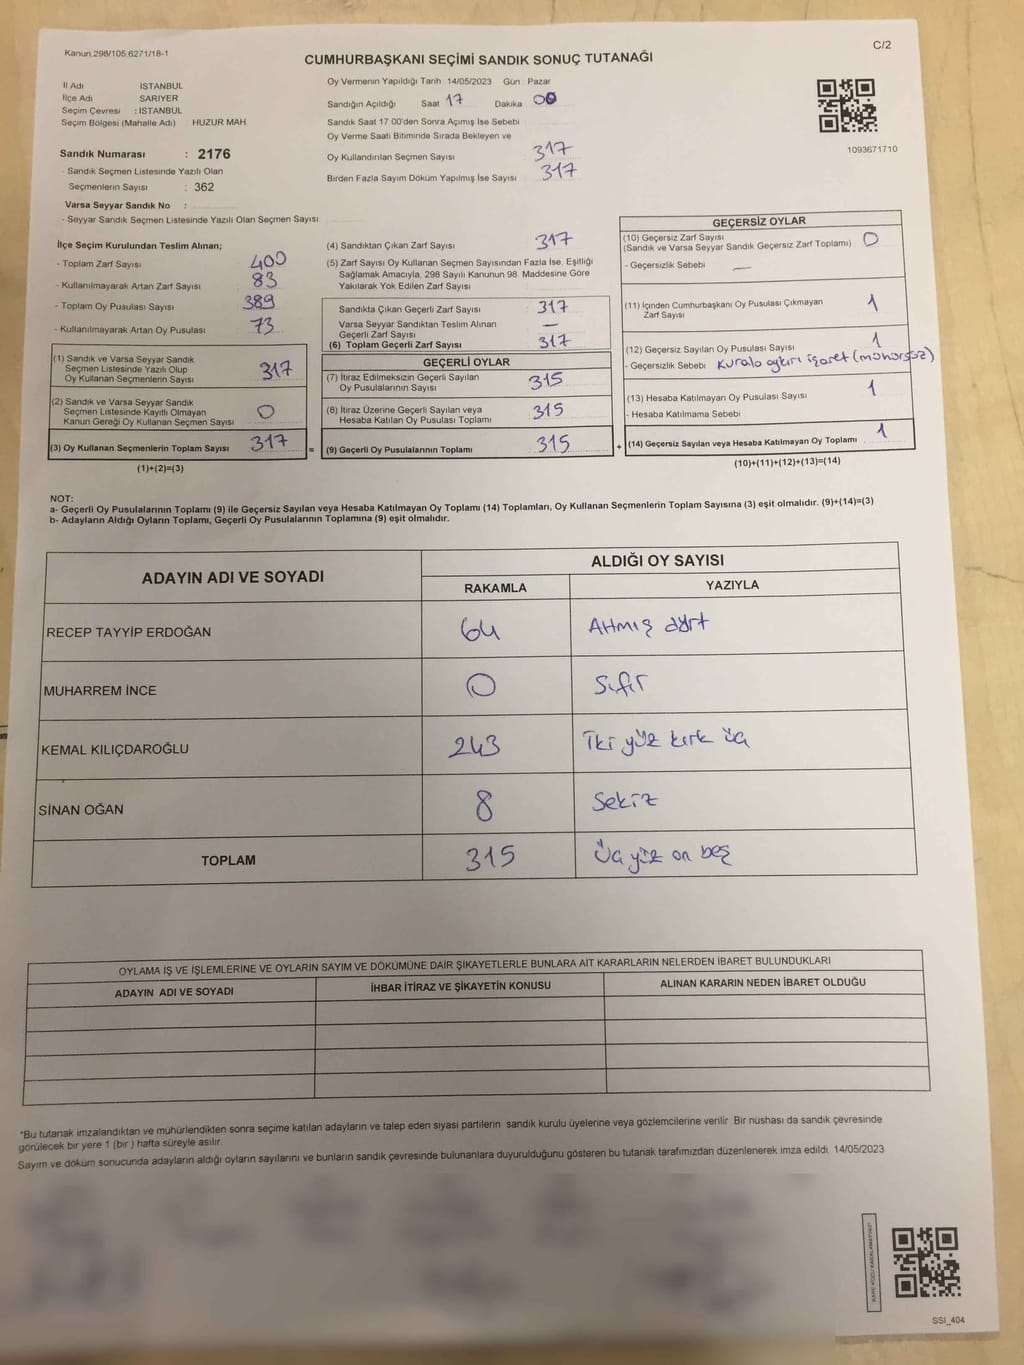 Kanun.298/105.6271/18-1
C/2
CUMHURBAŞKANI SEÇİMİ SANDIK SONUÇ TUTANAĞI
İl Adı İSTANBUL
İlçe Adı SARIYER
Seçim Çevresi : İSTANBUL
Seçim Bölgesi (Mahalle Adı) HUZUR MAH.
Sandık Numarası : 2176
- Sandık Seçmen Listesinde Yazılı Olan
Seçmenlerin Sayısı : 362
Varsa Seyyar Sandık No :
- Seyyar Sandık Seçmen Listesinde Yazılı Olan Seçmen Sayısı
Oy Vermenin Yapıldığı Tarih 14/05/2023 Gün Pazar
Sandığın Açıldığı Saat 17 Dakika 00
Sandık Saat 17 00'den Sonra Açımış İse Sebebi
Oy Verme Saati Bitiminde Sırada Bekleyen ve
Oy Kullandırılan Seçmen Sayısı 317
Birden Fazla Sayım Döküm Yapılmış İse Sayısı 317
1093671710
İlçe Seçim Kurulundan Teslim Alınan;
- Toplam Zarf Sayısı 400
- Kullanılmayarak Artan Zarf Sayısı 83
- Toplam Oy Pusulası Sayısı 389
- Kullanılmayarak Artan Oy Pusulası 73
(1) Sandık ve Varsa Seyyar Sandık
Seçmen Listesinde Yazılı Olup
Oy Kullanan Seçmenlerin Sayısı 317
(2) Sandık ve Varsa Seyyar Sandık
Seçmen Listesinde Kayıtlı Olmayan
Kanun Gereği Oy Kullanan Seçmen Sayısı 0
(3) Oy Kullanan Seçmenlerin Toplam Sayısı 317
(1)+(2)=(3)
(4) Sandıktan Çıkan Zarf Sayısı 317
(5) Zarf Sayısı Oy Kullanan Seçmen Sayısından Fazla İse, Eşitliği
Sağlamak Amacıyla, 298 Sayılı Kanunun 98. Maddesine Göre
Yakılarak Yok Edilen Zarf Sayısı
Sandıkta Çıkan Geçerli Zarf Sayısı 317
Varsa Seyyar Sandıktan Teslim Alınan
Geçerli Zarf Sayısı —
(6) Toplam Geçerli Zarf Sayısı 317
GEÇERLİ OYLAR
(7) İtiraz Edilmeksizin Geçerli Sayılan
Oy Pusulalarının Sayısı 315
(8) İtiraz Üzerine Geçerli Sayılan veya
Hesaba Katılan Oy Pusulası Toplamı 315
= (9) Geçerli Oy Pusulalarının Toplamı 315 +
GEÇERSİZ OYLAR
(10) Geçersiz Zarf Sayısı 0
(Sandık ve Varsa Seyyar Sandık Geçersiz Zarf Toplamı)
- Geçersizlik Sebebi —
(11) İçinden Cumhurbaşkanı Oy Pusulası Çıkmayan
Zarf Sayısı 1
(12) Geçersiz Sayılan Oy Pusulası Sayısı 1
- Geçersizlik Sebebi Kurala aykırı işaret (mühürsüz)
(13) Hesaba Katılmayan Oy Pusulası Sayısı 1
- Hesaba Katılmama Sebebi
(14) Geçersiz Sayılan veya Hesaba Katılmayan Oy Toplamı 1
(10)+(11)+(12)+(13)=(14)
NOT:
a- Geçerli Oy Pusulalarının Toplamı (9) ile Geçersiz Sayılan veya Hesaba Katılmayan Oy Toplamı (14) Toplamları, Oy Kullanan Seçmenlerin Toplam Sayısına (3) eşit olmalıdır. (9)+(14)=(3)
b- Adayların Aldığı Oyların Toplamı, Geçerli Oy Pusulalarının Toplamına (9) eşit olmalıdır.
ADAYIN ADI VE SOYADI ALDIĞI OY SAYISI
RAKAMLA YAZIYLA
RECEP TAYYİP ERDOĞAN 64 Atmış dört
MUHARREM İNCE 0 Sıfır
KEMAL KILIÇDAROĞLU 243 İki yüz kırk üç
SİNAN OĞAN 8 Sekiz
TOPLAM 315 Üç yüz on beş
OYLAMA İŞ VE İŞLEMLERİNE VE OYLARIN SAYIM VE DÖKÜMÜNE DAİR ŞİKAYETLERLE BUNLARA AİT KARARLARIN NELERDEN İBARET BULUNDUKLARI
ADAYIN ADI VE SOYADI İHBAR İTİRAZ VE ŞİKAYETİN KONUSU ALINAN KARARIN NEDEN İBARET OLDUĞU
*Bu tutanak imzalandıktan ve mühürlendikten sonra seçime katılan adayların ve talep eden siyasi partilerin sandık kurulu üyelerine veya gözlemcilerine verilir. Bir nüshası da sandık çevresinde
görülecek bir yere 1 (bir ) hafta süreyle asılır.
Sayım ve döküm sonucunda adayların aldığı oyların sayılarını ve bunların sandık çevresinde bulunanlara duyurulduğunu gösteren bu tutanak tarafımızdan düzenlenerek imza edildi. 14/05/2023
KARE KODU KARALAMAYINIZ!
SSI_404